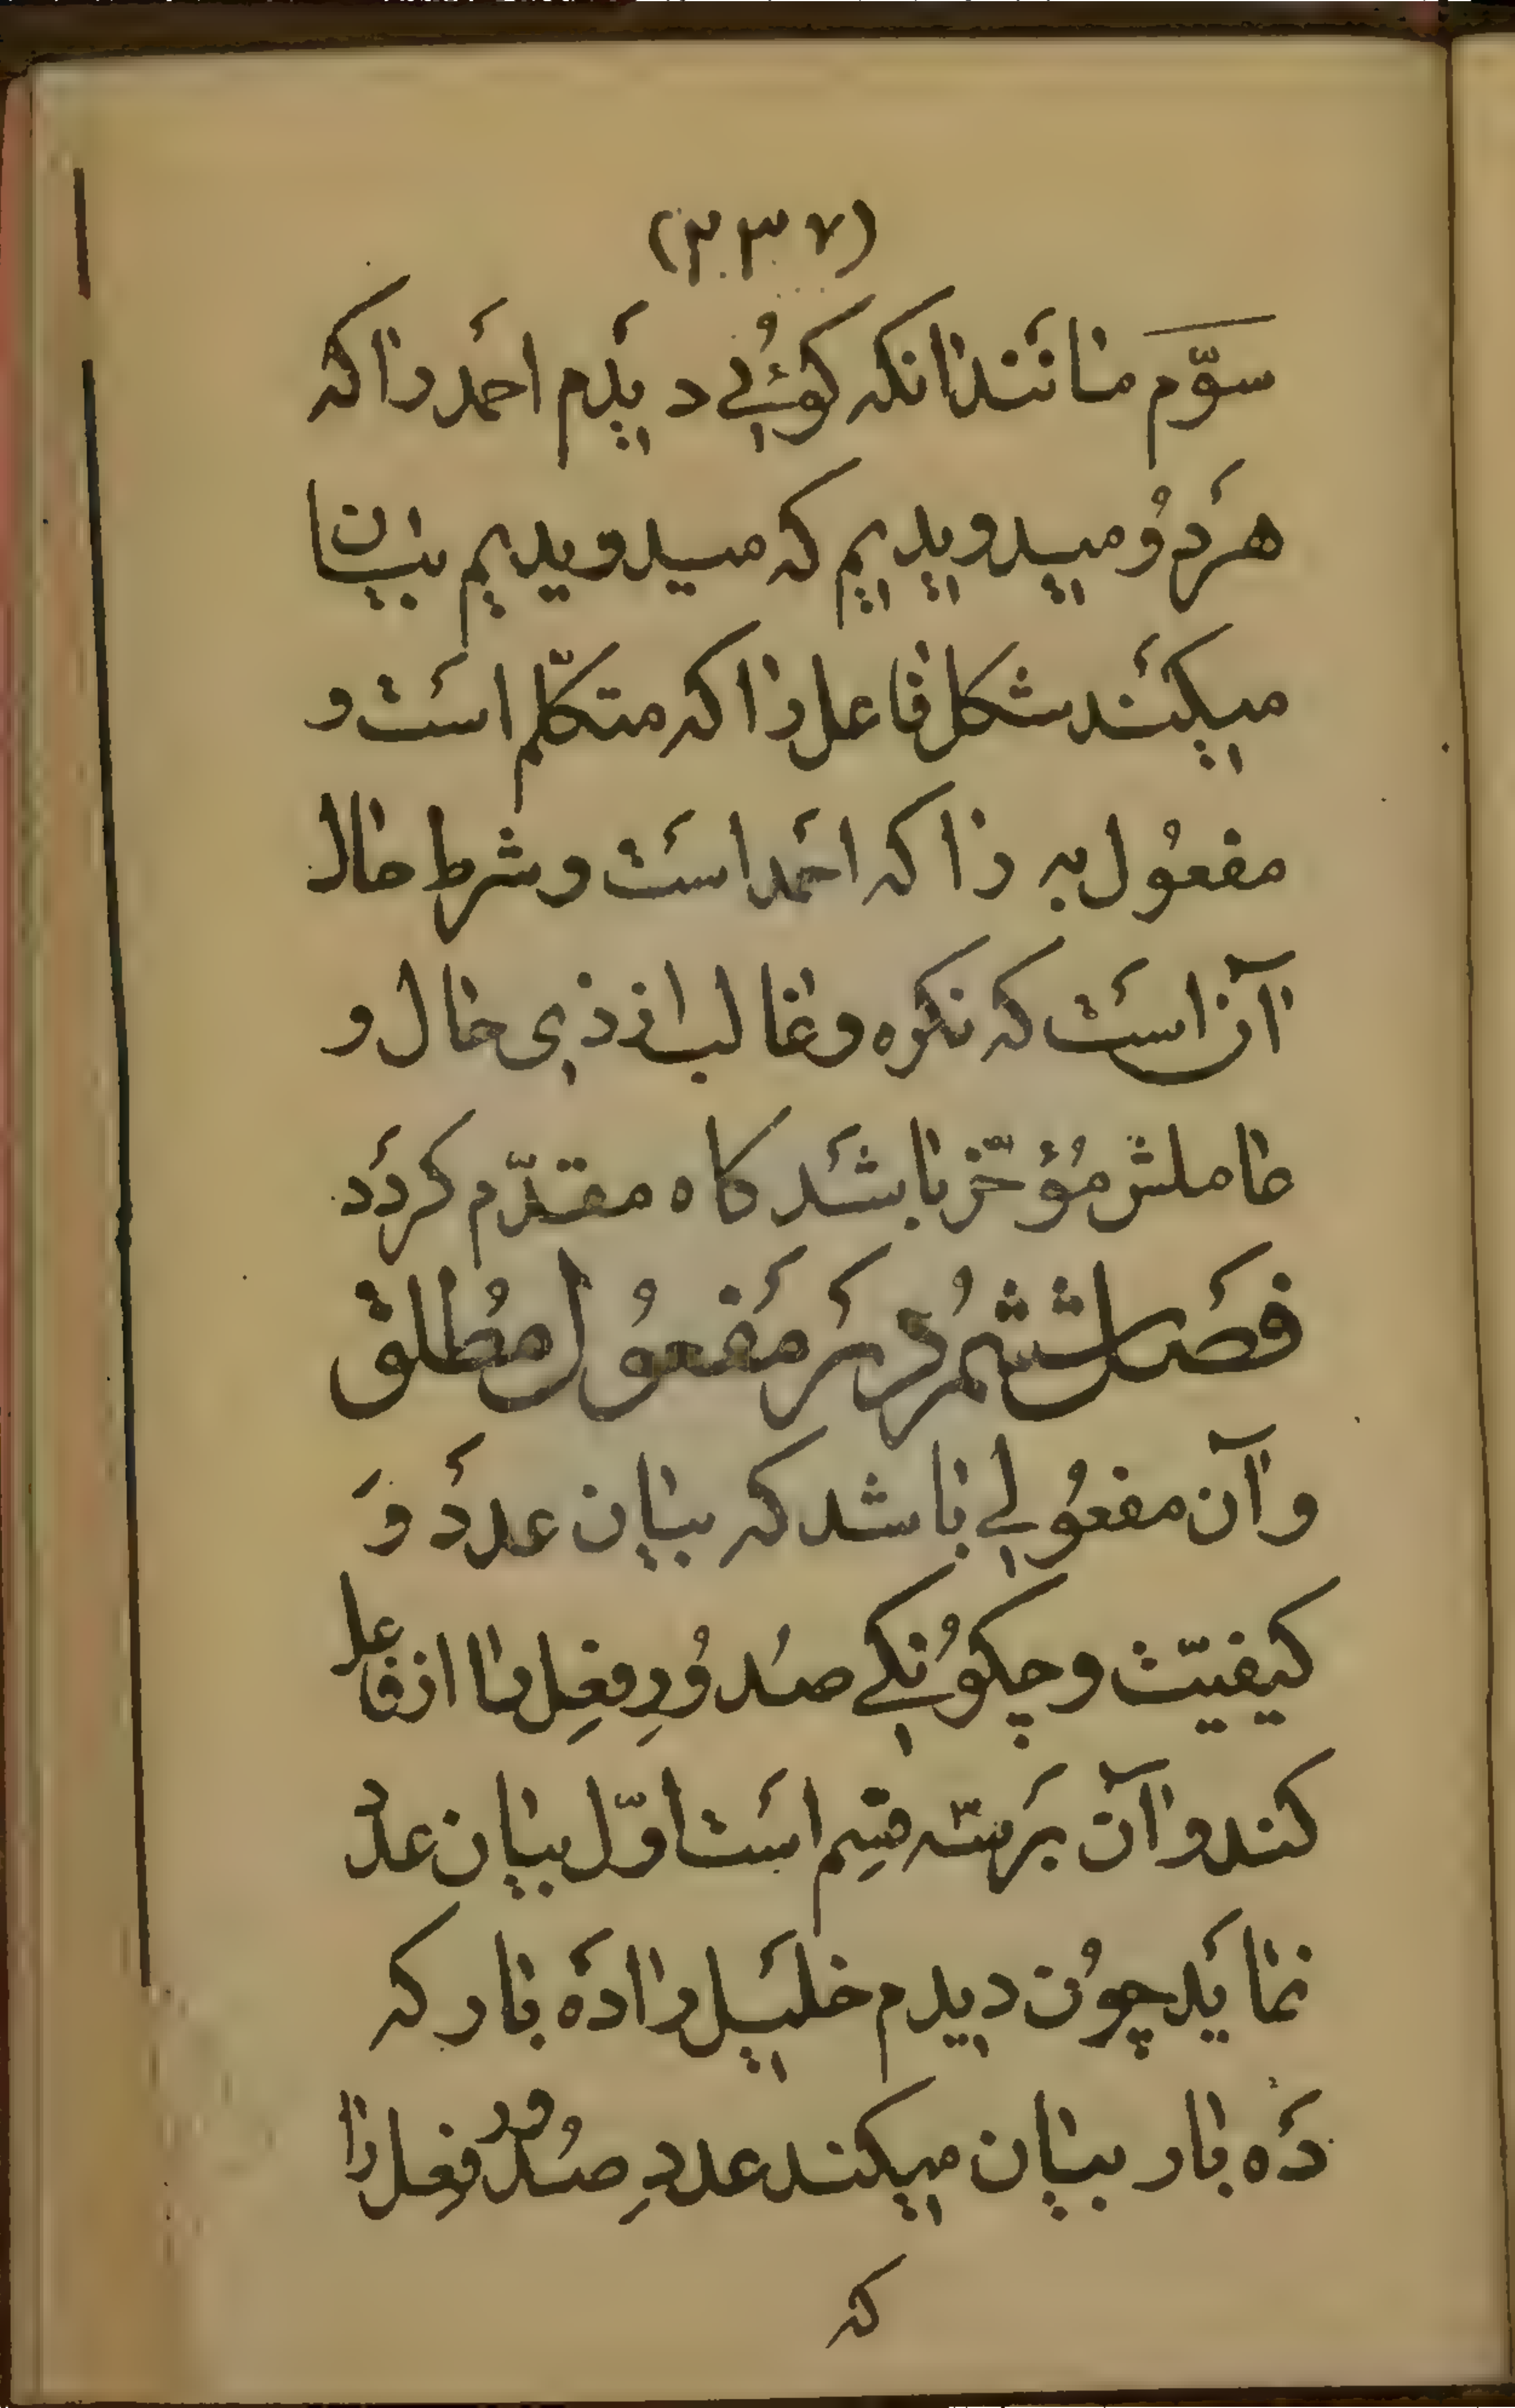 (۲۳۷)
سوّم مانَندانکه کوُئی دیدَم احَمد را که
هرَدوُ میدویدیم که میدویدیم بیان
میکنَند شکل فاعل را که متکلّم اسَت و
مفعوُل به را که احَمد اسَت و شرط حال
آن اسَت که نکره و غالب از ذی حال و
عاملش مُؤخّر باشَد کاه مقدّم کردَد
فصَل ششمُ دَر مَفعوُل مُطلق
و آن مفعوُلی باشد که بیان عددَ وَ
کیفیّت و چکوُنکی صُدوُرِ فِعِل را از فاعل
کند و آن برَ سّه قِسِم اسَت اوّل بیان عدد
نمایَد چوُن دیدم خلیَل را دَه بار که
دَه بار بیان میکند عددِ صُدور فِعِل را
که